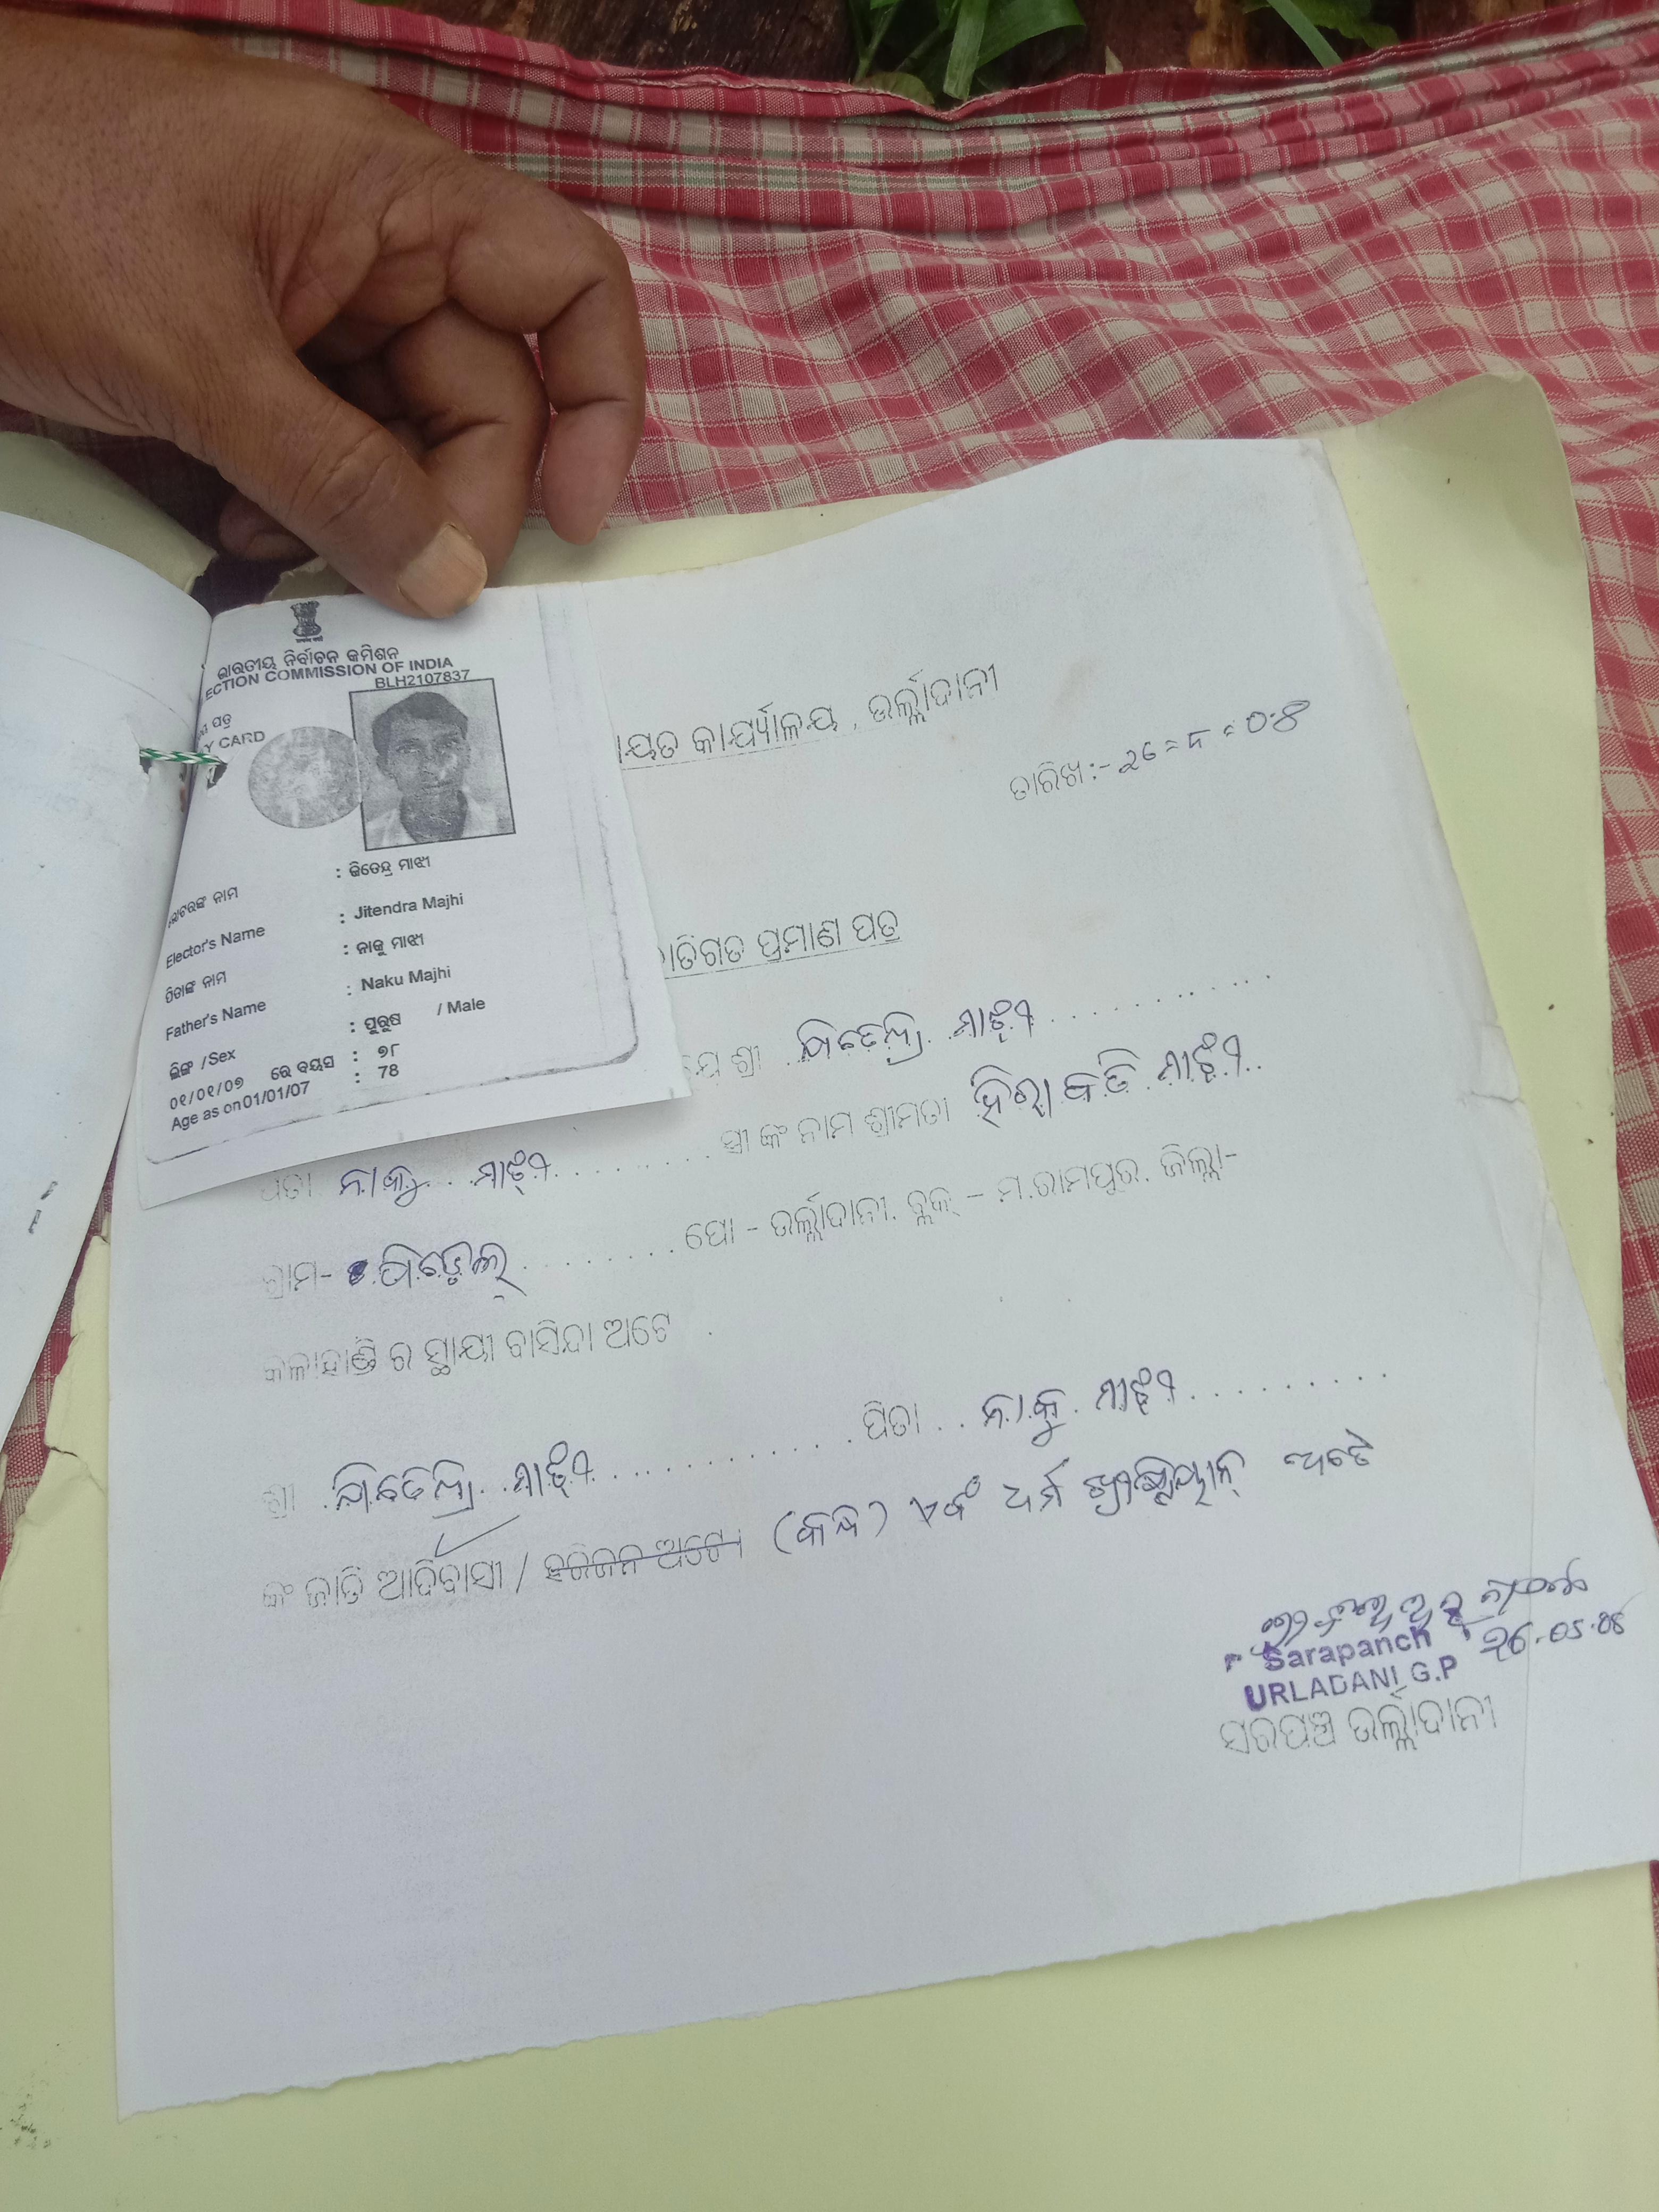 ଭାରତୀୟ ନିର୍ବାଚନ କମିଶନ
ECTION COMMISSION OF INDIA
BLH2107837
ପତ୍ର
Y CARD
ନାମ : ଜିତେନ୍ଦ୍ର ମାଝୀ
Elector's Name : Jitendra Majhi
ପିତାଙ୍କ ନାମ : ନାକୁ ମାଝୀ
Father's Name : Naku Majhi
ଲିଙ୍ଗ /Sex : ପୁରୁଷ / Male
୦୧/୦୧/୦୭ ରେ ବୟସ : ୭୮
Age as on 01/01/07 : 78
ାୟତ କାର୍ଯ୍ୟାଳୟ , ଉର୍ଲ୍ଲାଦାନୀ
ତାରିଖ:-
ାତିଗତ ପ୍ରମାଣ ପତ୍ର
ଯେ ଶ୍ରୀ ଜିତେନ୍ଦ୍ର ମାଝୀ
ପିତା ନାକୁ ମାଝୀ ସ୍ତ୍ରୀ ଙ୍କ ନାମ ଶ୍ରୀମତୀ ହିରାବତି ମାଝୀ
ଗ୍ରାମ- ପୋ - ଉର୍ଲ୍ଲାଦାନୀ, ବ୍ଲକ୍ - ମ.ରାମପୁର, ଜିଲ୍ଲା-
କଳାହାଣ୍ଡି ର ସ୍ଥାୟୀ ବାସିନ୍ଦା ଅଟେ
ଶ୍ରୀ ଜିତେନ୍ଦ୍ର ମାଝୀ ପିତା ନାକୁ ମାଝୀ
ଙ୍କ ଜାତି ଆଦିବାସୀ / ହରିଜନ ଅଟେ। (କନ୍ଧ) ଏବଂ ଧର୍ମ ଖ୍ରୀଷ୍ଟିୟାନ୍ ଅଟେ
Sarapanch
URLADANI G.P
ସରପଞ୍ଚ ଉର୍ଲ୍ଲାଦାନୀ